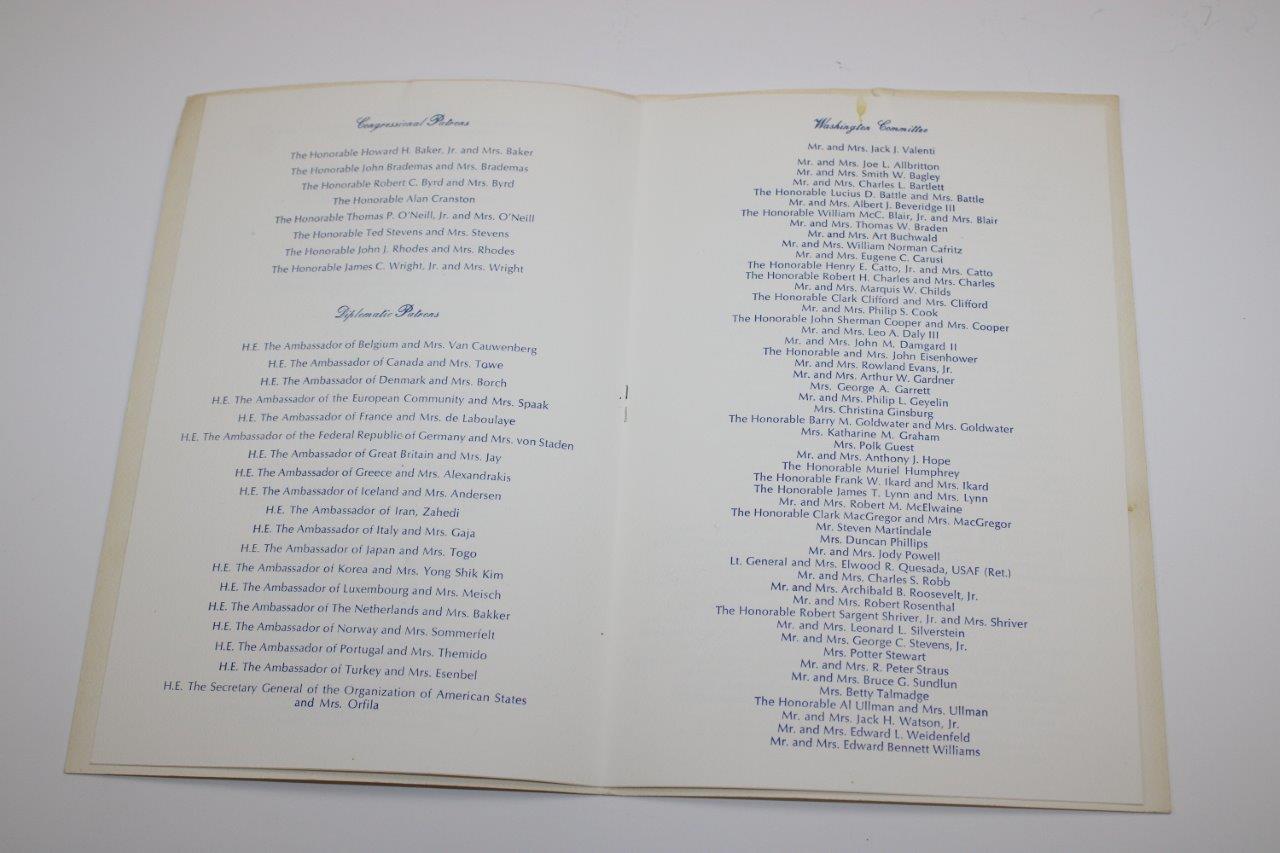 Congressional Patrons
The Honorable Howard H. Baker, Jr. and Mrs. Baker
The Honorable John Brademas and Mrs. Brademas
The Honorable Robert C. Byrd and Mrs. Byrd
The Honorable Alan Cranston
The Honorable Thomas P. O'Neill, Jr. and Mrs. O'Neill
The Honorable Ted Stevens and Mrs. Stevens
The Honorable John J. Rhodes and Mrs. Rhodes
The Honorable James C. Wright, Jr. and Mrs. Wright
Diplomatic Patrons
H.E. The Ambassador of Belgium and Mrs. Van Cauwenberg
H.E. The Ambassador of Canada and Mrs. Towe
H.E. The Ambassador of Denmark and Mrs. Borch
H.E. The Ambassador of the European Community and Mrs. Spaak
H.E. The Ambassador of France and Mrs. de Laboulaye
H.E. The Ambassador of the Federal Republic of Germany and Mrs. von Staden
H.E. The Ambassador of Great Britain and Mrs. Jay
H.E. The Ambassador of Greece and Mrs. Alexandrakis
H.E. The Ambassador of Iceland and Mrs. Andersen
H.E. The Ambassador of Iran, Zahedi
H.E. The Ambassador of Italy and Mrs. Gaja
H.E. The Ambassador of Japan and Mrs. Togo
H.E. The Ambassador of Korea and Mrs. Yong Shik Kim
H.E. The Ambassador of Luxembourg and Mrs. Meisch
H.E. The Ambassador of The Netherlands and Mrs. Bakker
H.E. The Ambassador of Norway and Mrs. Sommerfelt
H.E. The Ambassador of Portugal and Mrs. Themido
H.E. The Ambassador of Turkey and Mrs. Esenbel
H.E. The Secretary General of the Organization of American States
and Mrs. Orfila
Washington Committee
Mr. and Mrs. Jack J. Valenti
Mr. and Mrs. Joe L. Allbritton
Mr. and Mrs. Smith W. Bagley
Mr. and Mrs. Charles L. Bartlett
The Honorable Lucius D. Battle and Mrs. Battle
Mr. and Mrs. Albert J. Beveridge III
The Honorable William McC. Blair, Jr. and Mrs. Blair
Mr. and Mrs. Thomas W. Braden
Mr. and Mrs. Art Buchwald
Mr. and Mrs. William Norman Cafritz
Mr. and Mrs. Eugene C. Carusi
The Honorable Henry E. Catto, Jr. and Mrs. Catto
The Honorable Robert H. Charles and Mrs. Charles
Mr. and Mrs. Marquis W. Childs
The Honorable Clark Clifford and Mrs. Clifford
Mr. and Mrs. Philip S. Cook
The Honorable John Sherman Cooper and Mrs. Cooper
Mr. and Mrs. Leo A. Daly III
Mr. and Mrs. John M. Damgard II
The Honorable and Mrs. John Eisenhower
Mr. and Mrs. Rowland Evans, Jr.
Mr. and Mrs. Arthur W. Gardner
Mrs. George A. Garrett
Mr. and Mrs. Philip L. Geyelin
Mrs. Christina Ginsburg
The Honorable Barry M. Goldwater and Mrs. Goldwater
Mrs. Katharine M. Graham
Mrs. Polk Guest
Mr. and Mrs. Anthony J. Hope
The Honorable Muriel Humphrey
The Honorable Frank W. Ikard and Mrs. Ikard
The Honorable James T. Lynn and Mrs. Lynn
Mr. and Mrs. Robert M. McElwaine
The Honorable Clark MacGregor and Mrs. MacGregor
Mr. Steven Martindale
Mrs. Duncan Phillips
Mr. and Mrs. Jody Powell
Lt. General and Mrs. Elwood R. Quesada, USAF (Ret.)
Mr. and Mrs. Charles S. Robb
Mr. and Mrs. Archibald B. Roosevelt, Jr.
Mr. and Mrs. Robert Rosenthal
The Honorable Robert Sargent Shriver, Jr. and Mrs. Shriver
Mr. and Mrs. Leonard L. Silverstein
Mr. and Mrs. George C. Stevens, Jr.
Mrs. Potter Stewart
Mr. and Mrs. R. Peter Straus
Mr. and Mrs. Bruce G. Sundlun
Mrs. Betty Talmadge
The Honorable Al Ullman and Mrs. Ullman
Mr. and Mrs. Jack H. Watson, Jr.
Mr. and Mrs. Edward L. Weidenfeld
Mr. and Mrs. Edward Bennett Williams